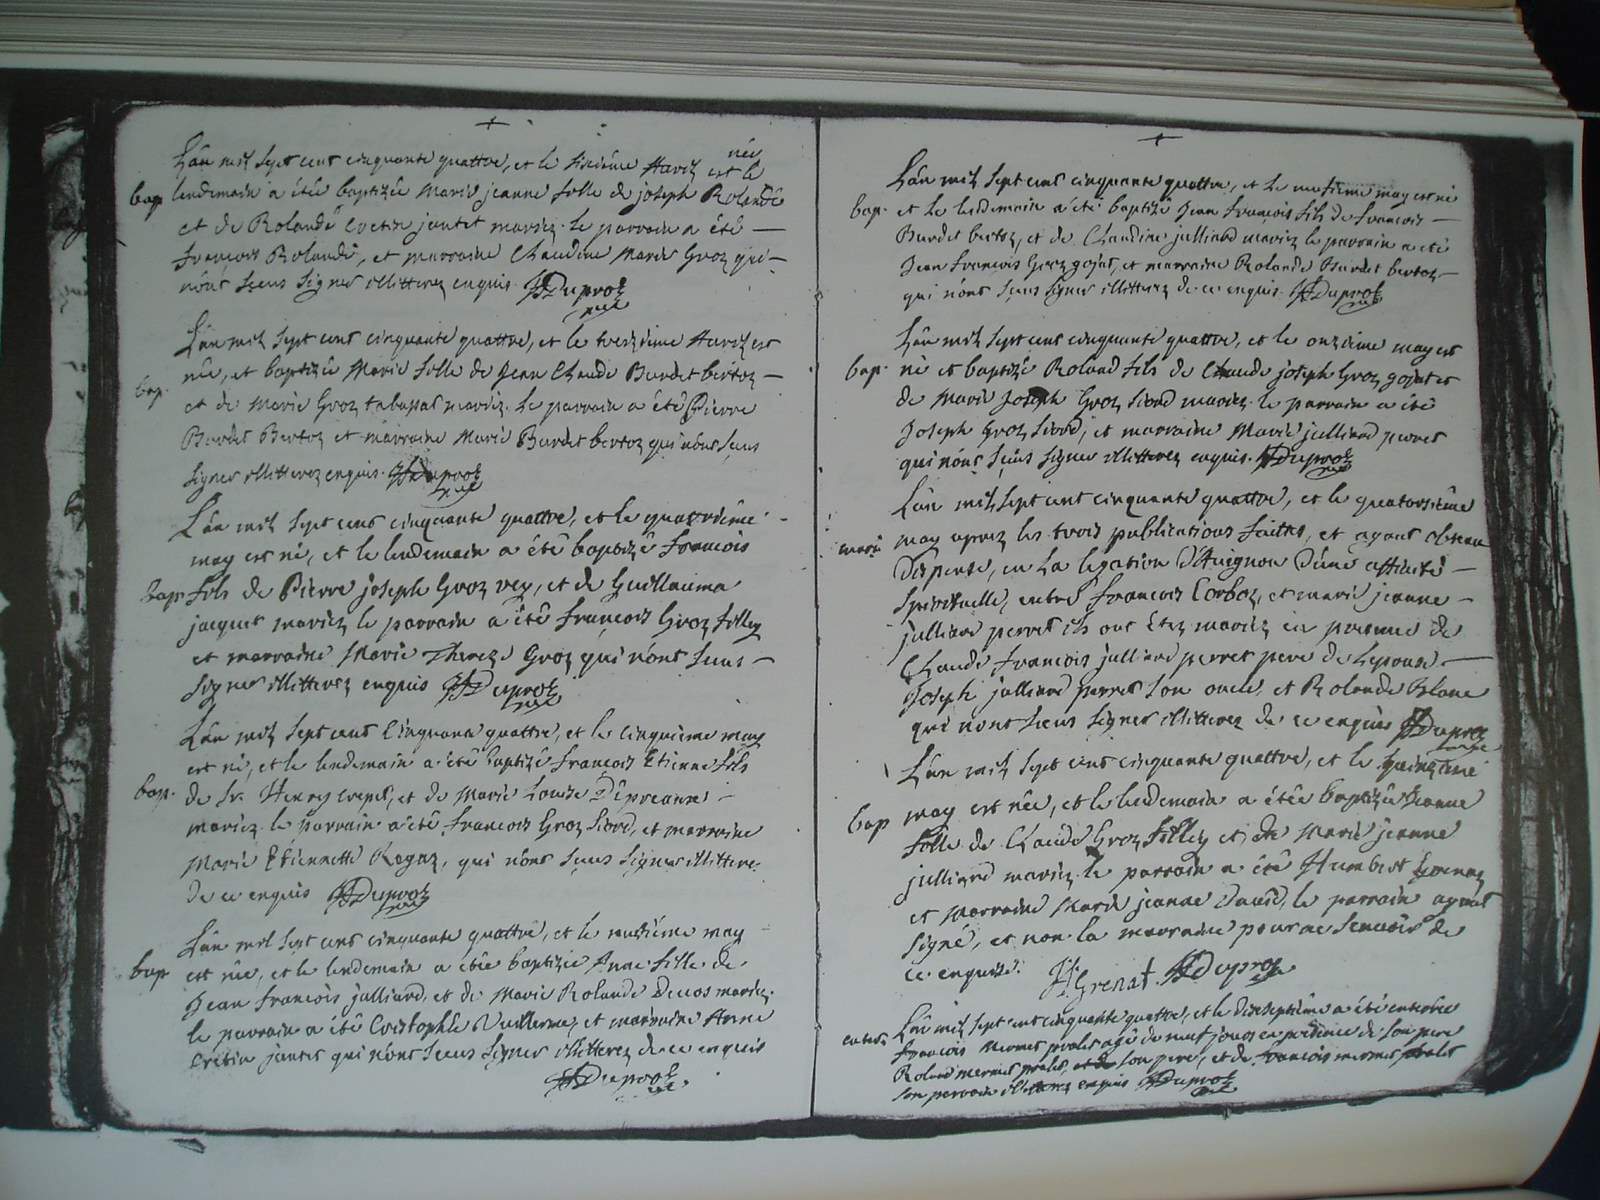 L'an mil sept cent cinquante quattre, et le sixieme Avril est née le
bap lendemain a étée baptizée Marie jeanne fille de joseph Rolandé
et de Rolande Cretin jantet mariez. le parrain a été
françois Rolandé, et marraine Claudine Marie Groz qui
n'ont sceus signer illitterez enquis. Duproz
L'an mil sept cent cinquante quattre, et le treizieme Avril est
bap. née, et baptizée Marie fille de Jean Claude Burdet bertoz
et de Marie Groz tabassat mariez. Le parrain a été Pierre
Burdet Bertoz et marraine Marie Burdet bertoz qui n'ont sceus
signer illitterez enquis. Duproz
L'an mil sept cens cinquante quattre, et le quatrieme
may est né, et le lendemain a été baptizé françois
bap fils de Pierre joseph Groz vey, et de Guillauma
jacquet mariez le parrain a été françois Groz filley
et marraine Marie Thereze Groz qui n'ont sceus
signer illitterez enquis Duproz
L'an mil sept cens cinquante quattre, et le cinquieme may
est né, et le lendemain a été baptizé francois Etienne fils
bap. de Sr. Henry, et de Marie Louise
mariez le parrain a été francois Groz siord, et marraine
Marie Etiennette, qui n'ont sceus signer illittere
de ce enquis Duproz
L'an mil sept cens cinquante quattre, et le may
bap est née, et le lendemain a étée baptizée Anne fille de
Jean francois julliard, et de Marie Rolande mariez.
le parrain a été Cristophle Vuillerme, et marraine Anne
Cretin jantet qui n'ont sceus signer illitterez de ce enquis
Duproz
L'an mil sept cens cinquante quattre, et le may est né
bap. et le lendemain a été baptizé Jean francois fils de francois
Burdet bertoz, et de Claudine julliard mariez le parrain a été
Jean francois Groz gojat, et marraine Rolande Burdet bertoz
qui n'ont sceus signer illitterez de ce enquis. Duproz
L'an mil sept cens cinquante quattre, et le onzieme may est
bap. né et baptizé Roland fils de Claude joseph Groz gojat et
de Marie Joseph Groz siord mariez. le parrain a été
Joseph Groz siord, et marraine Marie julliard perret
qui n'ont sceus signer illitterez enquis. Duproz
L'an mil sept cent cinquante quattre, et le quatorsieme
marié may aprez les trois publications faittes, et ayant obtenu
dispense, en La legation d'Avignon d'une affinité
spirituelle, entre francois Corboz, et marie jeanne
julliard perret ils ont étez mariez en presence de
Claude francois julliard perret pere de Lepouse
Joseph julliard perret son oncle, et Rolande blanc
qui n'ont sceus signer illitterez de ce enquis Duproz
L'an mil sept cens cinquante quattre, et le quinzieme
bap may est née, et le lendemain a étée baptizée Jeanne
fille de Claude Groz filley et de Marie jeanne
julliard mariez. le parrain a été Humbert Grenaz
et Marraine Marie jeanne David, le parrain ayant
signé, et non la marraine pour ne scavoir de
ce enquisse. H. Grenat. Duproz
L'an mil sept cent cinquante quattre, et le dixseptieme a été enterré
enter. françois Mermet pralet agé de neuf jours en presence de son pere
Roland mermet pralet, son pere, et de francois mermet pralet
son parrain illitterez enquis Duproz